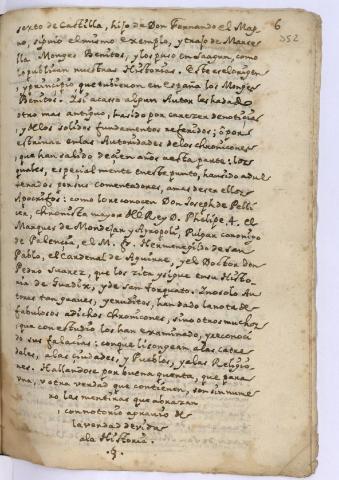 6
252
sexto de Castilla, hijo de Don Fernando el Mag-
no, siguio el mismo exemplo, y trajo de Marse-
lla Monges Benitos, y los puso en Saagun, como
lo publican nuestras Historias. Este es el origen
y principio que tuvieron en España los Monges
Benitos. Si acaso algun Autor las ha dado
otro mas antiguo, ha sido por carezer de noticias
y de los solidos fundamentos referidos; ò por
estrivar en las Autoridades de los chronicones
que han salido de cien años a esta parte: los
quales, especialmente en este punto, han sido adul-
terados por sus comentadores, a mas de ser ellos
Apocrifos: como lo reconocen Don Joseph de Pelli-
zer, chronista mayor del Rey D. Phelipe 4. el
Marques de Mondejar y Agropoli, Pulgar canonigo
de Palencia, el M. fr. Hermenegildo de San
Pablo, el Cardenal de Aguirre, y el Doctor don
Pedro Suarez, que los zita y sigue en su Histo-
ria de Guadix, y de San Torquato. I no solo Au-
tores tan graves, y eruditos, han dado la nota de
fabulosos a dichos chronicones, sino otros muchos,
que con estudio los han examinado, y reconoci-
do sus falacias: con que lisongean a las catre-
dales, a las ciudades, y Pueblos, y a las Religio-
nes. Hallandose por buena quenta, que para
una, u otra verdad que contienen, son sin nume-
ro las mentiras que abrazan
, con notorio agravio de
la verdad devida
a la Historia.
.§.